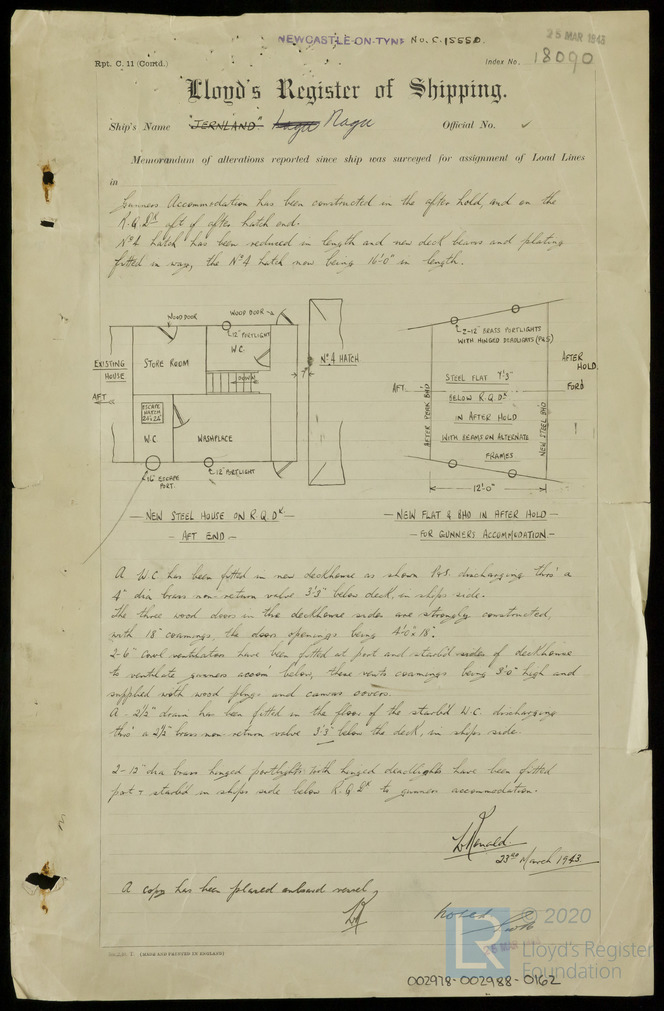 NEWCASTLE-ON-TYNE No. C.15550.
25 MAR 1943
Rpt. C. 11 (Contd.)
Index No. 18090
Lloyd's Register of Shipping.
Ship's Name "JERNLAND" Ragu
Official No.
Memorandum of alterations reported since ship was surveyed for assignment of Load Lines
in
Gunners Accommodation has been constructed in the after hold, and on the
R.Q.Dk aft of after hatch end.
No 4 hatch has been reduced in length and new deck beams and plating
fitted in way, the No 4 hatch now being 16'-0" in length.
WOOD DOOR
WOOD DOOR
12" PORTLIGHT
W.C.
EXISTING
HOUSE
STORE ROOM
AFT
DOWN
No 4 HATCH
7'
ESCAPE
HATCH
24"x24"
W.C.
WASHPLACE
16" ESCAPE
PORT.
12" PORTLIGHT
— NEW STEEL HOUSE ON R.Q.Dk —
— AFT END —
2-12" BRASS PORTLIGHTS
WITH HINGED DEADLIGHTS (P&S)
AFTER
HOLD.
FOR'D
AFT.
AFTER PEAK BHD
STEEL FLAT 7'3"
BELOW R.Q.Dk
IN AFTER HOLD
WITH BEAMS ON ALTERNATE
FRAMES.
NEW STEEL BHD.
12'-0"
— NEW FLAT & BHD IN AFTER HOLD —
— FOR GUNNERS ACCOMMODATION —
A W.C. has been fitted in new deckhouse as shown P&S. discharging thro' a
4" dia brass non-return valve 3'3" below deck, in ships side.
The three wood doors in the deckhouse sides are strongly constructed,
with 18" coamings, the door openings being 4'6" x 18".
2-6" Cowl ventilators have been fitted at port and starb'd sides of deckhouse
to ventilate gunners accom' below, these vents coamings being 3'0" high and
supplied with wood plugs and canvas covers.
A 2½" drain has been fitted in the floor of the starb'd W.C. discharging
thro' a 2½" brass non-return valve 3'3" below the deck, in ships side.
2-12" dia brass hinged portlights with hinged deadlights have been fitted
port & starb'd in ships side below R.Q.Dk to gunners accommodation.
23rd March 1943.
A copy has been placed onboard vessel
noted
© 2020
LR
Lloyd's Register
Foundation
(MADE AND PRINTED IN ENGLAND)
002978-002988-0162